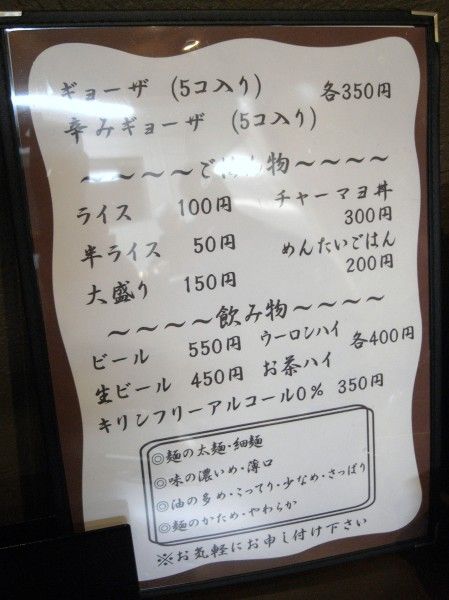 ギョーザ (5コ入り) 各350円
辛みギョーザ (5コ入り)
〜〜〜〜ごはん物〜〜〜〜
ライス 100円 チャーマヨ丼
300円
半ライス 50円 めんたいごはん
200円
大盛り 150円
〜〜〜〜飲み物〜〜〜〜
ビール 550円 ウーロンハイ 各400円
生ビール 450円 お茶ハイ
キリンフリーアルコール0% 350円
◎麺の太麺・細麺
◎味の濃いめ・薄口
◎油の多め・こってり・少なめ・さっぱり
◎麺のかため・やわらか
※お気軽にお申し付け下さい